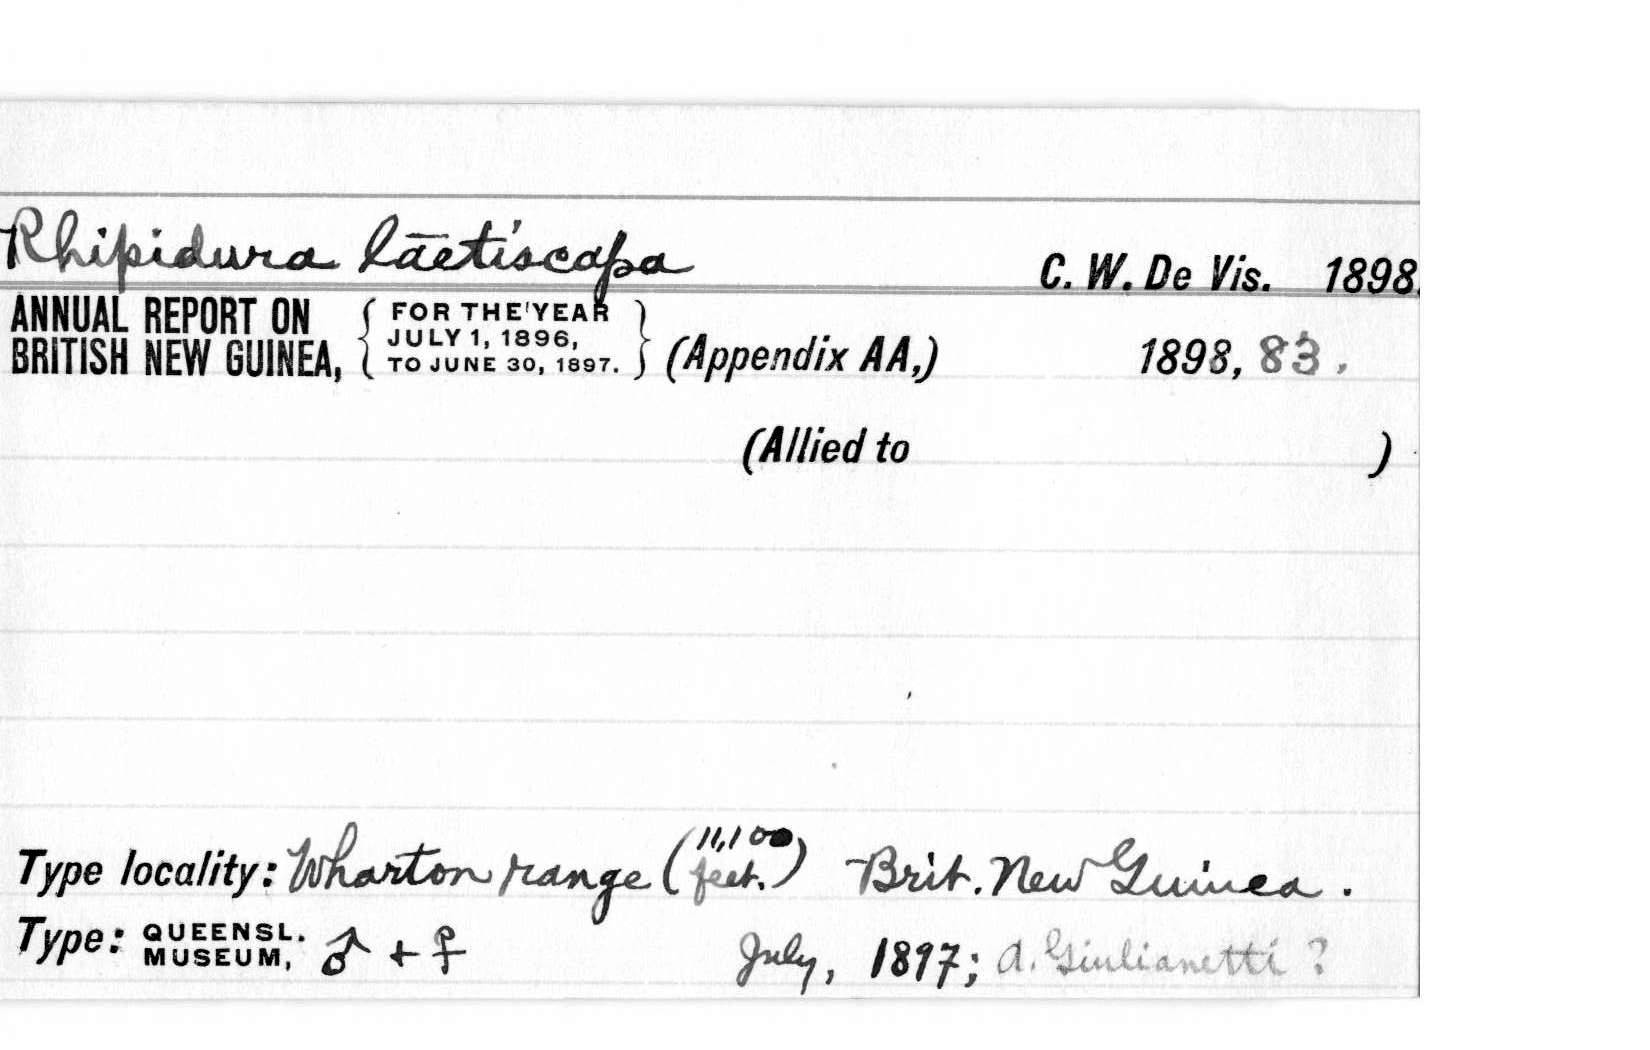 Rhipidura lāetiscapa C. W. De Vis. 1898.
ANNUAL REPORT ON BRITISH NEW GUINEA, { FOR THE YEAR JULY 1, 1896, TO JUNE 30, 1897. } (Appendix AA,) 1898, 83.
(Allied to )
Type locality: Wharton range (11,100 feet.) Brit. New Guinea.
Type: QUEENSL. MUSEUM, ♂ + ♀ July, 1897; A. Giulianetti ?